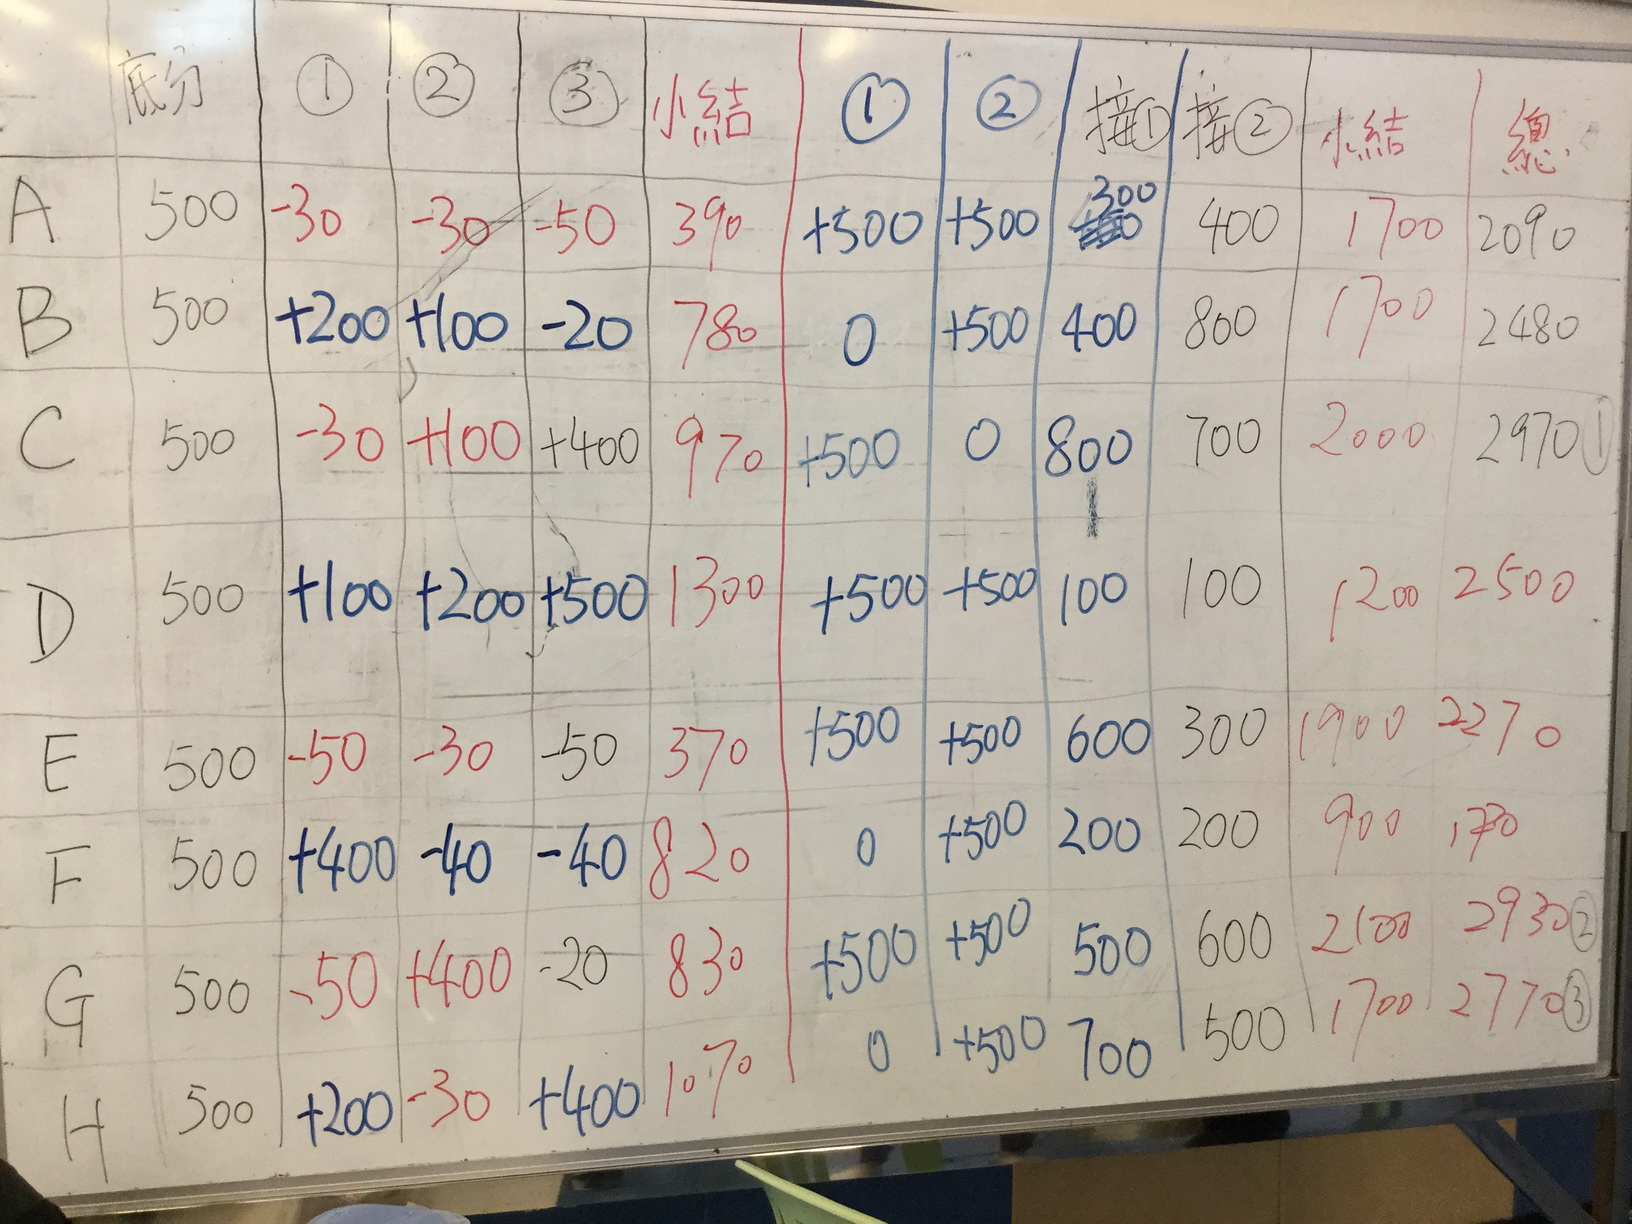 底分 ① ② ③ 小結 ① ② 接① 接② 小結 總
A 500 -30 -30 -50 390 +500 +500 300 400 1700 2090
B 500 +200 +100 -20 780 0 +500 400 800 1700 2480
C 500 -30 +100 +400 970 +500 0 800 700 2000 2970 ①
D 500 +100 +200 +500 1300 +500 +500 100 100 1200 2500
E 500 -50 -30 -50 370 +500 +500 600 300 1900 2270
F 500 +400 -40 -40 820 0 +500 200 200 900
G 500 -50 +400 -20 830 +500 +500 500 600 2100 2930 ②
H 500 +200 -30 +400 1070 0 +500 700 500 1700 2770 ③